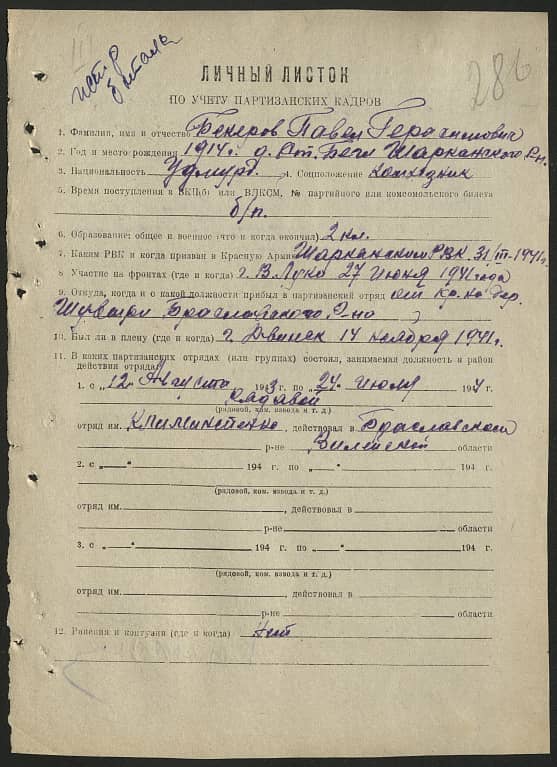 III
286
ЛИЧНЫЙ ЛИСТОК
ПО УЧЕТУ ПАРТИЗАНСКИХ КАДРОВ
1. Фамилия, имя и отчество Бекеров Павел Герасимович
2. Год и место рождения 1914 г. д. Шарканского Р-н.
3. Национальность Удмурт. 4. Соцположение колхозник
5. Время поступления в ВКП(б) или ВЛКСМ, № партийного или комсомольского билета
б/п.
6. Образование: общее и военное (что и когда окончил) 2 кл.
7. Каким РВК и когда призван в Красную Армию Шарканским РВК 31/III-1941 г.
8 Участие на фронтах (где и когда) г. В. Луки 27 Июня 1941 года
9. Откуда, когда и с какой должности прибыл в партизанский отряд
Браславского Р-на
10. Был ли в плену (где и когда) г. Двинск 14 ноября 1941 г.
11. В каких партизанских отрядах (или группах) состоял, занимаемая должность и район
действия отряда)
1. с „12" Августа 1943 г. по „24" Июля 1944 г.
Рядовой
(рядовой, ком. взвода и т. д.)
отряд им. действовал в Браславском
р-не Вилейской области
2. с „ " 194 г. по „ " 194 г.
(рядовой, ком. взвода и т. д.)
отряд им. , действовал в
р-не области
3. с „ " 194 г. по „ " 194 г.
(рядовой, ком. взвода и т. д.)
отряд им. , действовал в
р-не области
12. Ранения и контузии (где и когда) нет